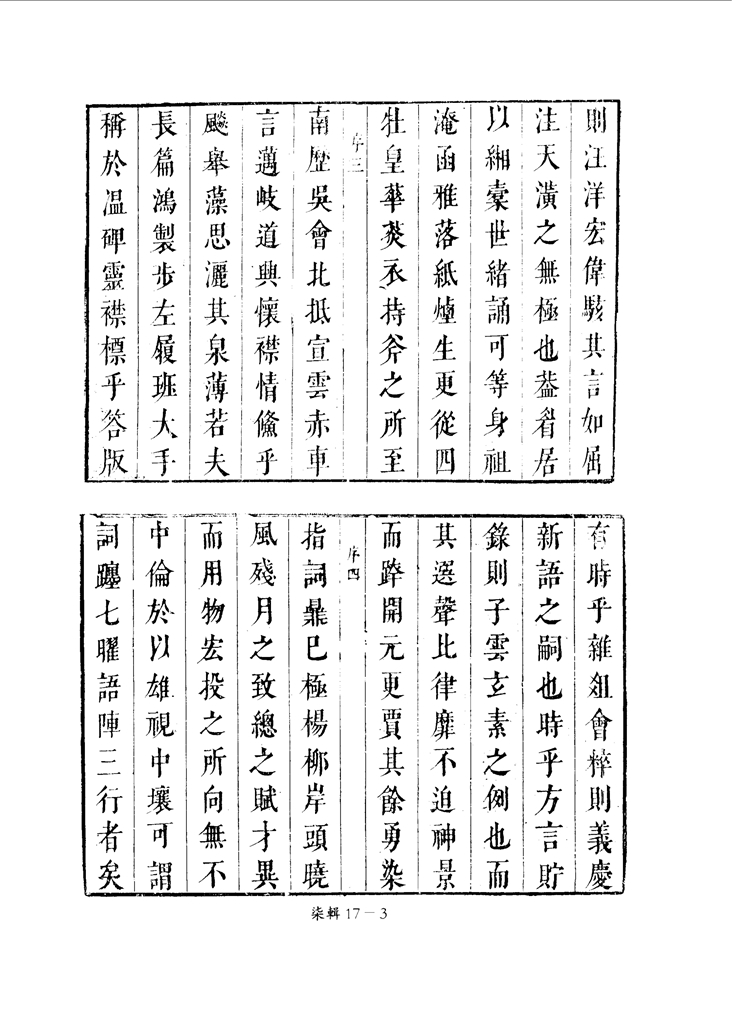 則汪洋宏偉駭其言如屈
注天潢之無極也葢者居
以緗橐世緒誦可等身祖
淹函雅落紙煙生更從四
牡皇華英衣持斧之所至
序三
南歷吳會北抵宣雲赤車
言邁岐道興懷襟情儵乎
飈舉藻思灑其泉薄若夫
長篇鴻製步左履班大手
稱於温碑靈襟標乎答版
有時乎雜俎會粹則義慶
新語之嗣也時乎方言貯
錄則子雲玄素之例也而
其選聲比律靡不迫神景
而踔開元更賈其餘勇染
序四
指詞鼎巳極楊柳岸頭曉
風殘月之致總之賦才異
而用物宏投之所向無不
中倫於以雄視中壤可謂
詞躔七曜語陣三行者矣
柒輯 17－3